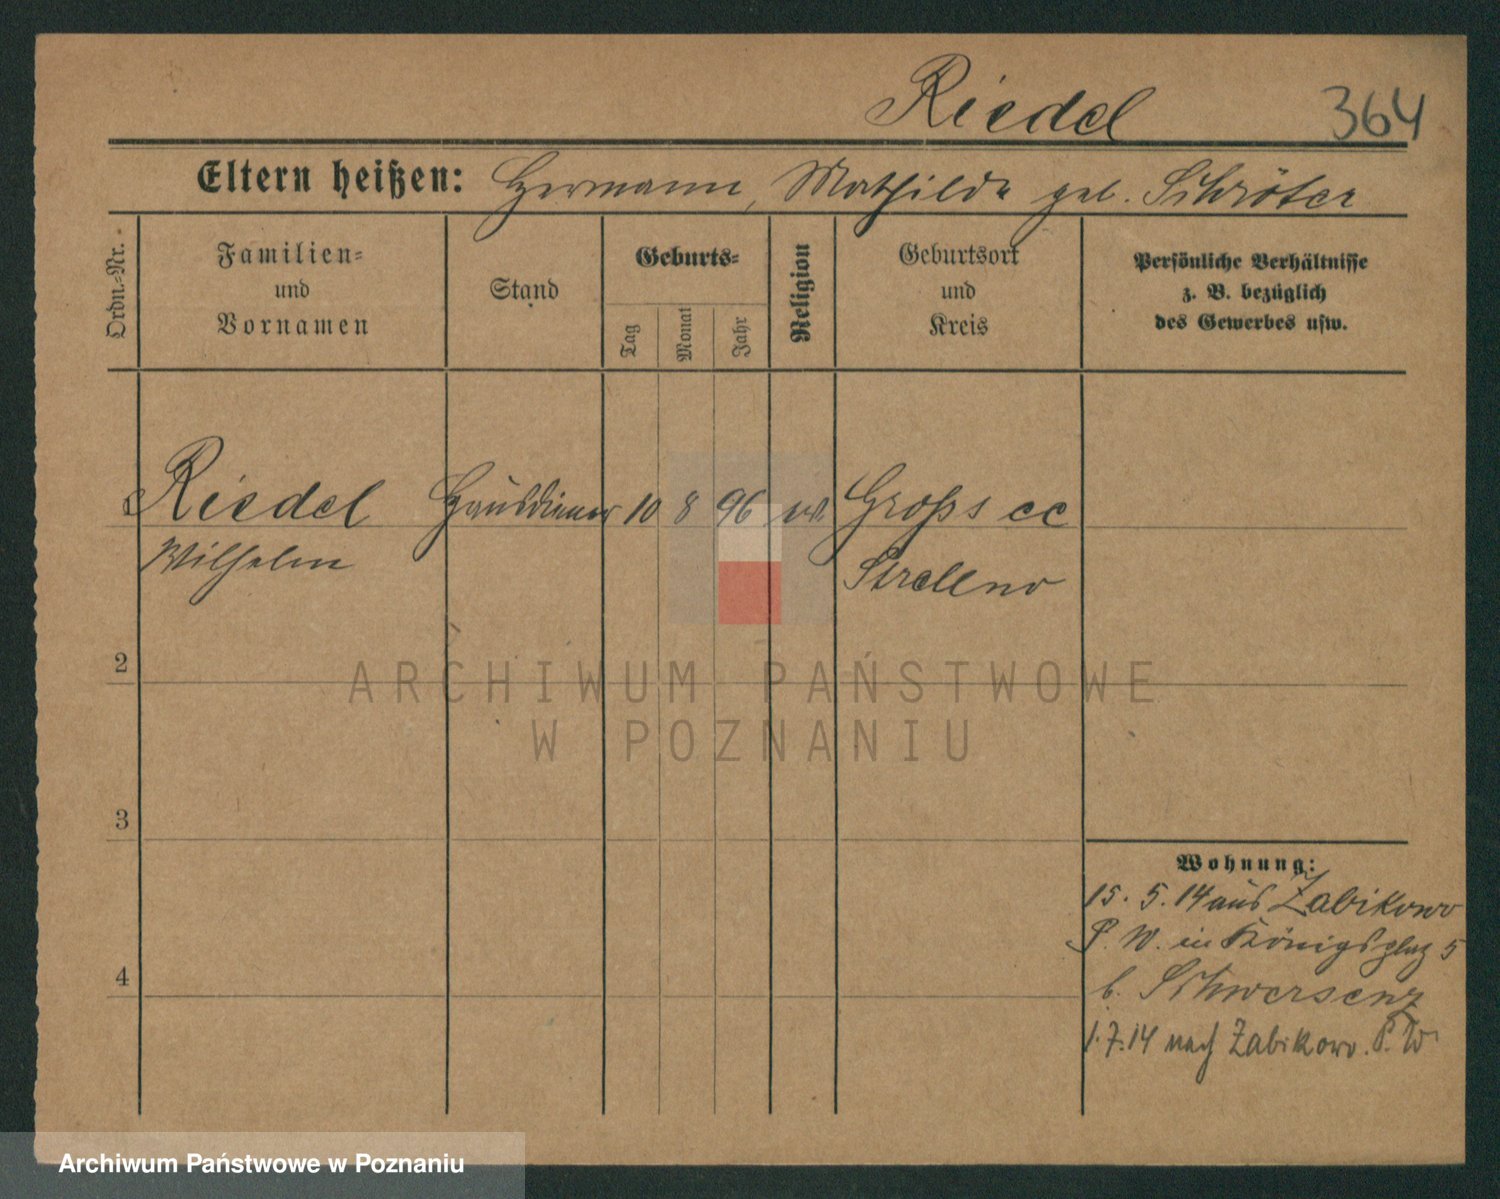 Riedel 364
Eltern heißen: Hermann, Mathilde geb. Schröter
Ordn.-Nr.
Familien-
und
Vornamen
Stand
Geburts-
Tag
Monat
Jahr
Religion
Geburtsort
und
Kreis
Persönliche Verhältnisse
z. B. bezüglich
des Gewerbes usw.
Riedel Hausdiener 10 8 96 Gross
Wilhelm Strelno
2
3
4
Wohnung:
15. 5. 14 aus Zabikowo
P. W. in Königsplatz 5
b. Schwersenz
1. 7. 14 nach Zabikowo. P. W.
ARCHIWUM PAŃSTWOWE
W POZNANIU
Archiwum Państwowe w Poznaniu